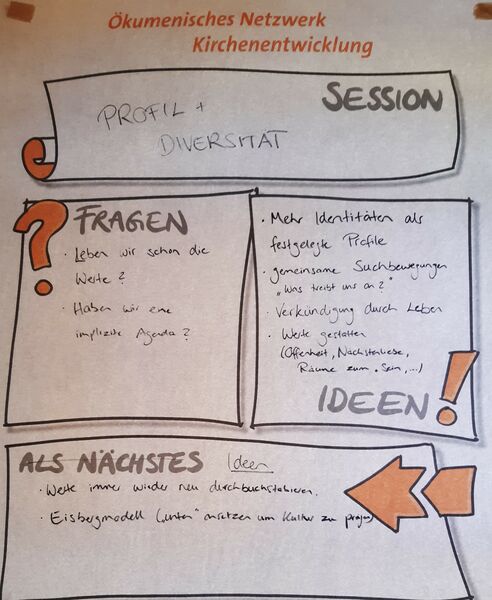 Ökumenisches Netzwerk
Kirchenentwicklung
SESSION
PROFIL +
DIVERSITÄT
? FRAGEN
· Leben wir schon die
Werte?
· Haben wir eine
implizite Agenda?
· Mehr Identitäten als
festgelegte Profile
· gemeinsame Suchbewegungen
„Was treibt uns an?"
· Verkündigung durch Leben
· Werte gestalten
(Offenheit, Nächstenliebe,
Räume zum „Sein", ...)
IDEEN!
ALS NÄCHSTES Ideen
· Werte immer wieder neu durchbuchstabieren.
· Eisbergmodell („unten" ansetzen um Kultur zu prägen)